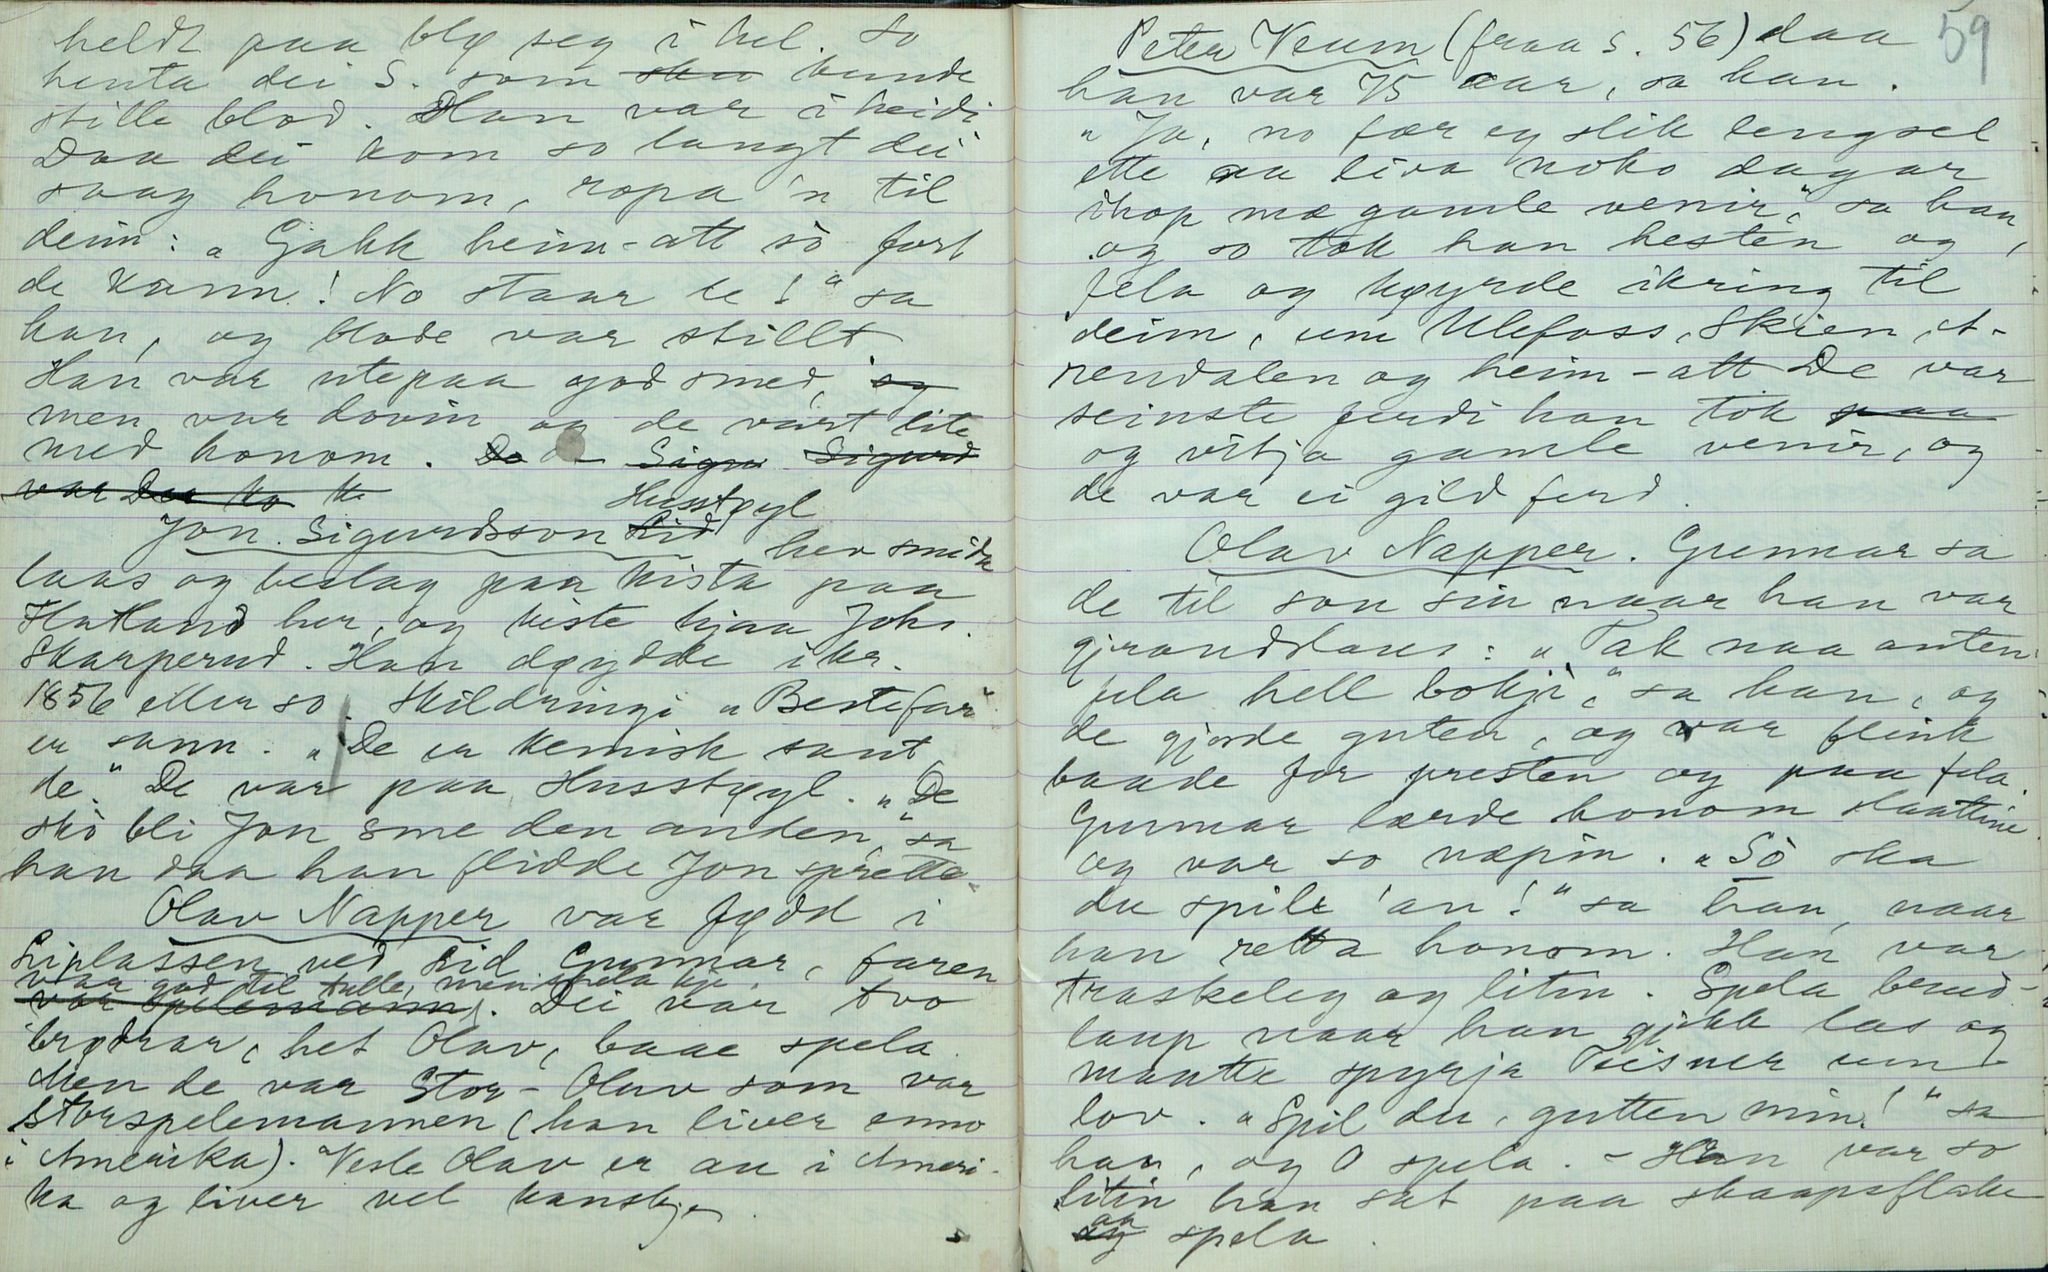 heldt paa blø seg i hel. So
henta dei S. som sku kunde
stille blod. Han var i heidi
Daa dei kom so langt dei
saag honom, ropa 'n til
deim: „Gakk heim-att sò fort
de kann! No staar te!“ sa
han, og blode var stillt
Han var utepaa god smed, og
men var dovin og de vart lite
med honom. Sigurd
var Daa ko
Husstøyl
Jon Sigurdsson Lid hev smida
laas og beslag paa kista paa
Hatland her, og kiste hjaa Joh.
Skarperud. Han døydde ikr.
1856 eller so. Skildringi „Bestefar“
er sann. „De er kemisk sant
de.“ De var paa Husstøyl. „De
skò bli Jon Sme den anden,“ sa
han daa han flidde Jon sprette.
Olav Napper var fødd i
Liplassen ved Lid Gunnar, faren
var god til tulle, men spela kje
var spelemann. Dei var tvo
brødrar, het Olav, baae spela.
Men de var Stor-Olav som var
storspelemannen (han liver enno
i Amerika). Vesle Olav er au i Ameri-
ka og liver vel kanskje.
59
Peter Veum (fraa s. 56) daa
han var 75 aar, sa han.
„Ja, no fær eg slik lengsel
ette aa liva noko dagar
ihop mæ gamle venir,“ sa han,
og so tok han hesten og
fela og køyrde ikring til
deim, um Ulefoss, Skien, A-
rendalen og heim-att De var
seinste ferdi han tok paa
og vitja gamle venir, og
de var ei gild ferd.
Olav Napper. Gunnar sa
de til son sin naar han var
grandslaus: „Tak naa anten
fela hell bokji,“ sa han, og
de gjorde guten, og var flink
baade for presten og paa fela.
Gunnar lærde honom slaattine
og var so næpin. „Sò ska
du spile 'an!“ sa han, naar
han retta honom. Han var
traskeleg og litin. Spela brud-
laup naar han gjekk las og
maatte spyrja Teisner um
lov. „Spil du, gutten min!“ sa
han, og O spela. – Han var so
litin han sat paa skaapsflake
og aa spela.